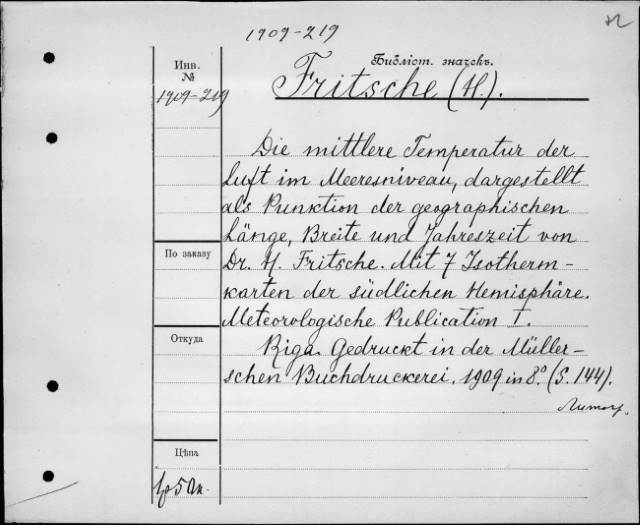 1909-219
Инв.
№
1909-219
Библіот. значекъ.
Fritsche (H.).
Die mittlere Temperatur der
Luft im Meeresniveau, dargestellt
als Punktion der geographischen
Länge, Breite und Jahreszeit von
Dr. H. Fritsche. Mit 7 Isotherm-
karten der südlichen Hemisphäre.
Meteorologische Publication I.
Riga. Gedruckt in der Müller-
schen Buchdruckerei. 1909 in 8.° (S. 144).
По заказу
Откуда
Цѣна